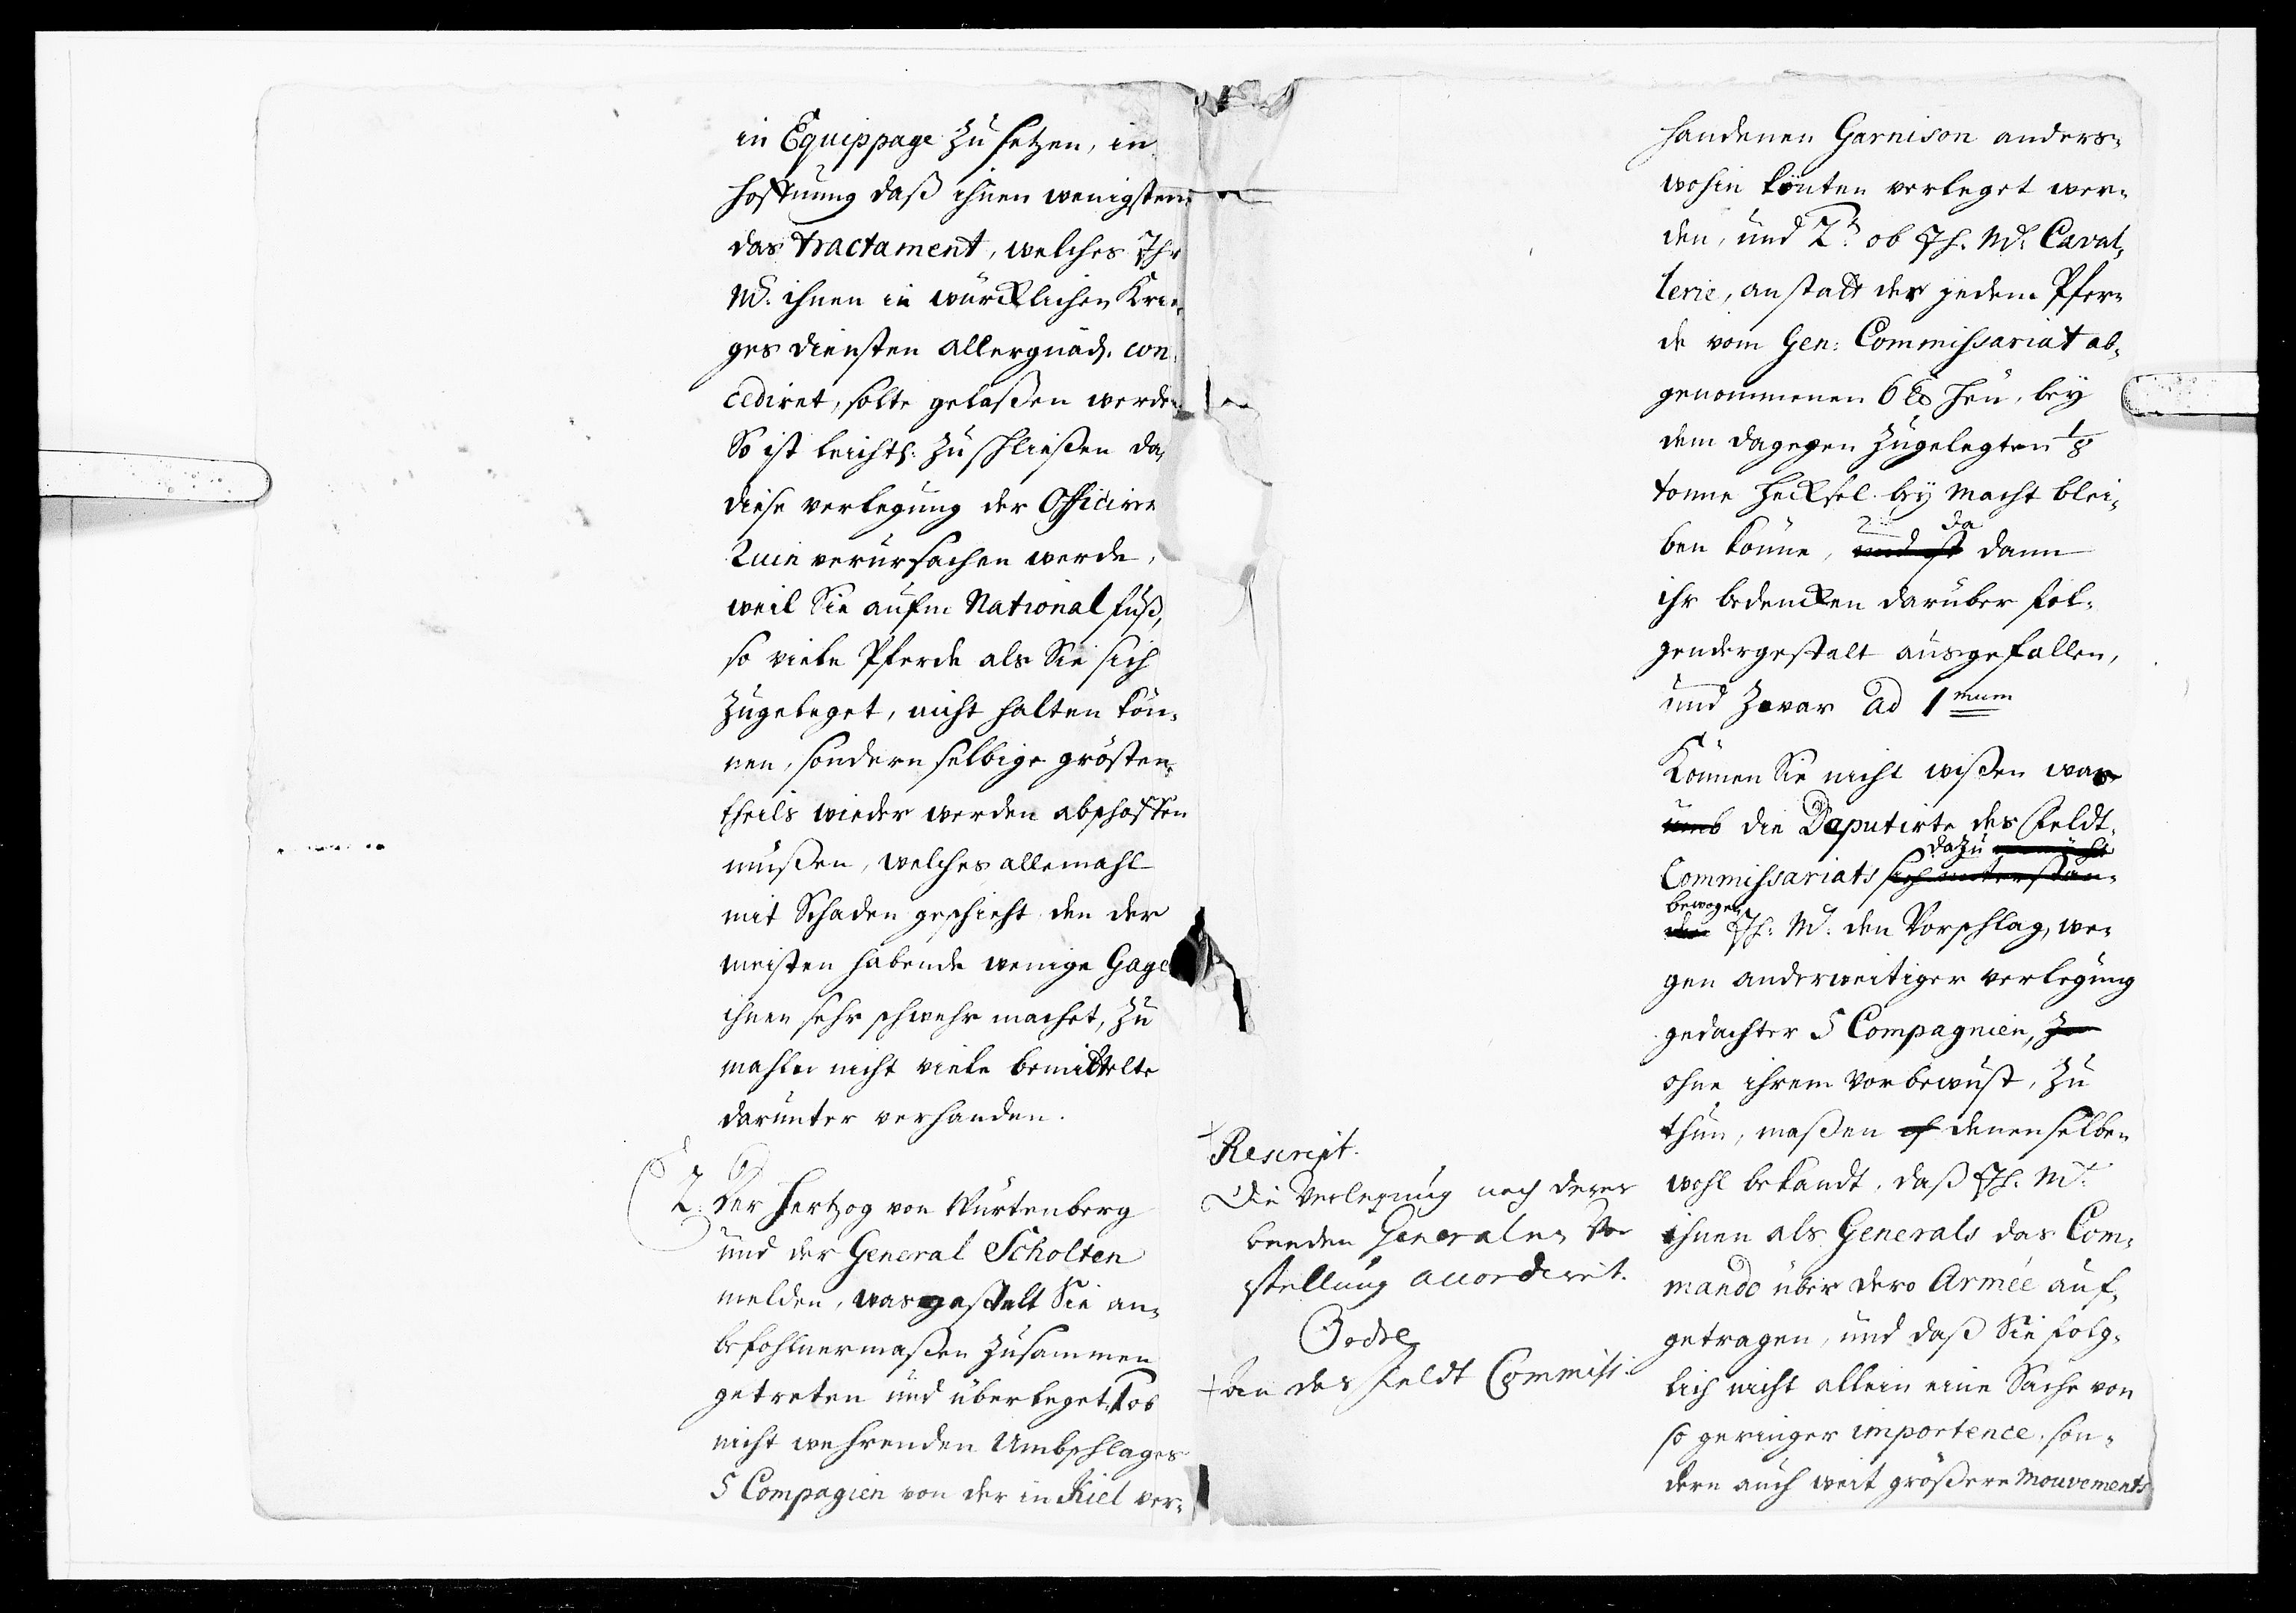 in Equippage zu setzen, in
hoffnung daß ihnen wenigstens
das tractament, welches Ihr
Mt. ihnen in würcklichen Krie-
ges diensten allergnäd. con-
cediret, solte gelaßen werden
So ist leichtl. zu schließen das
diese verlegung der Officirer
Ruin verursachen werde,
weil Sie aufm National fuß,
so viele Pferde als Sie sich
zugeleget, nicht halten kön-
nen, sondern selbige grösten-
theils wieder werden abschaffen
müßen, welches allemahl
mit Schaden geschieht, den der
meisten habende wenige Gage
ihnen sehr schwehr machet, zu
mahlen nicht viele bemittelte
darunter verhanden.
2. Der Hertzog von Würtenberg
und der General Scholten
melden, wasgestalt Sie an-
befohlnermaßen zusammen
getreten und überleget, 1 ob
nicht wehrenden Umbschlages
5 Compagien von der in Kiel ver-
Rescript.
Die Verlegung nach derer
beeden Generalen Vor
stellung accordiret.
Ordre
an das Feldt Commiss:
handenen Garnison anders-
wohin könten verleget wer-
den, und 2t. ob Ih. Mt. Caval-
lerie, anstatt der jedem Pfer-
de vom Gen: Commissariat ab-
genommenen 6 ℔ Heu, bey
dem dagegen zugelegten 1/8
tonne Hecksel bey Macht blei-
ben könne, und ist da dann
ihr bedencken darüber fol-
gendergestalt ausgefallen,
und zwar ad 1mum
Können Sie nicht wißen was
umb die Deputirte des Feldt-
Commissariats dazu sich unterstan-
bewogen
den Ih. Mt. den Vorschlag, we-
gen anderweitiger verlegung
gedachter 5 Compagnien, zu
ohne ihrem Vorbewust, zu
thun, maßen denenselben
wohl bekandt, daß Ih. Mt.
ihnen als Generals das Com-
mando über dero Armée auf-
getragen, und daß Sie folg-
lich nicht allein eine Sache von
so geringer importence, son-
dern auch weit größere mouvements